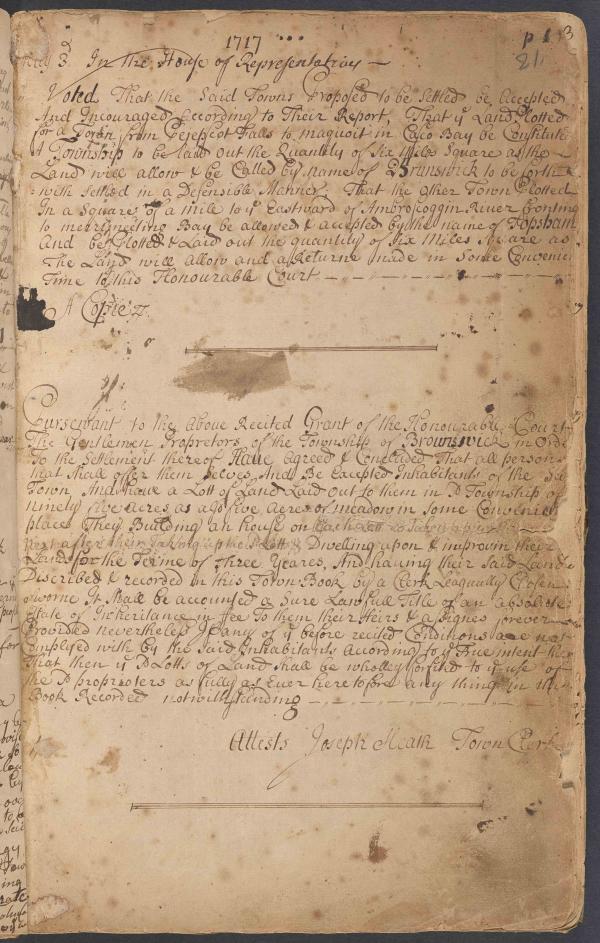 1717
p 1 3
21
3 In the House of Representatives
Voted That the Said Towns Proposed to be Settled be Accepted
And Incouraged According to Their Report, That ye Land Plotted
for a Town from Pejepscot Falls to maquoit in Casco Bay be Constitute
A Township to be laid out the Quantity of Six Miles Square as the
Land will allow & be Called by name of Brunswick to be forth
with Settled in a Defensible Manner, That the Other Town Plotted
In a Square of a mile to ye Eastward of Ambroscoggin River fronting
to merrymeeting Bay be allowed & accepted by the name of Topsham
And be Plotted & Laid out the quantity of Six Miles Square as
The Land will allow and a Returne made in Some Convenient
Time to this Honourable Court
A Copie
Pursewant to the Above Recited Grant of the Honourable Court
The Gentlemen Propretors of the Township of Brownswick in Orde
To the Settlement thereof Have Agreed & Concluded That all persons
that Shall offer them Selves And Be Excepted Inhabitants of the Sd
Town And have a Lott of Land Laid out to them in Sd Township of
ninety five Acres as also five Acres of meadow in Some Convenient
place They Building an house on Each Lott
next after their Lotts & Dwelling upon & improvin their
Lands for the Terme of Three Yeares, And having their Said Lands
Discribed & recorded in this Town Book by a Clerk Leagually Chosen
Sworne It Shall be accounted a Sure Lawfull Title of an absolute
Estate of Inheritance in ffee To them their Heirs & assignes forever
Provided nevertheless If any of ye before recited Conditions are not
Complyed with by the Said Inhabitants According to ye True intent then
That then ye Sd Lotts of Land Shall be wholly forfitd to ye use of
the Sd proprioters as fully as Ever heretofore any thing in this
Book Recorded notwithstanding
Attests Joseph Heath Town Clerk